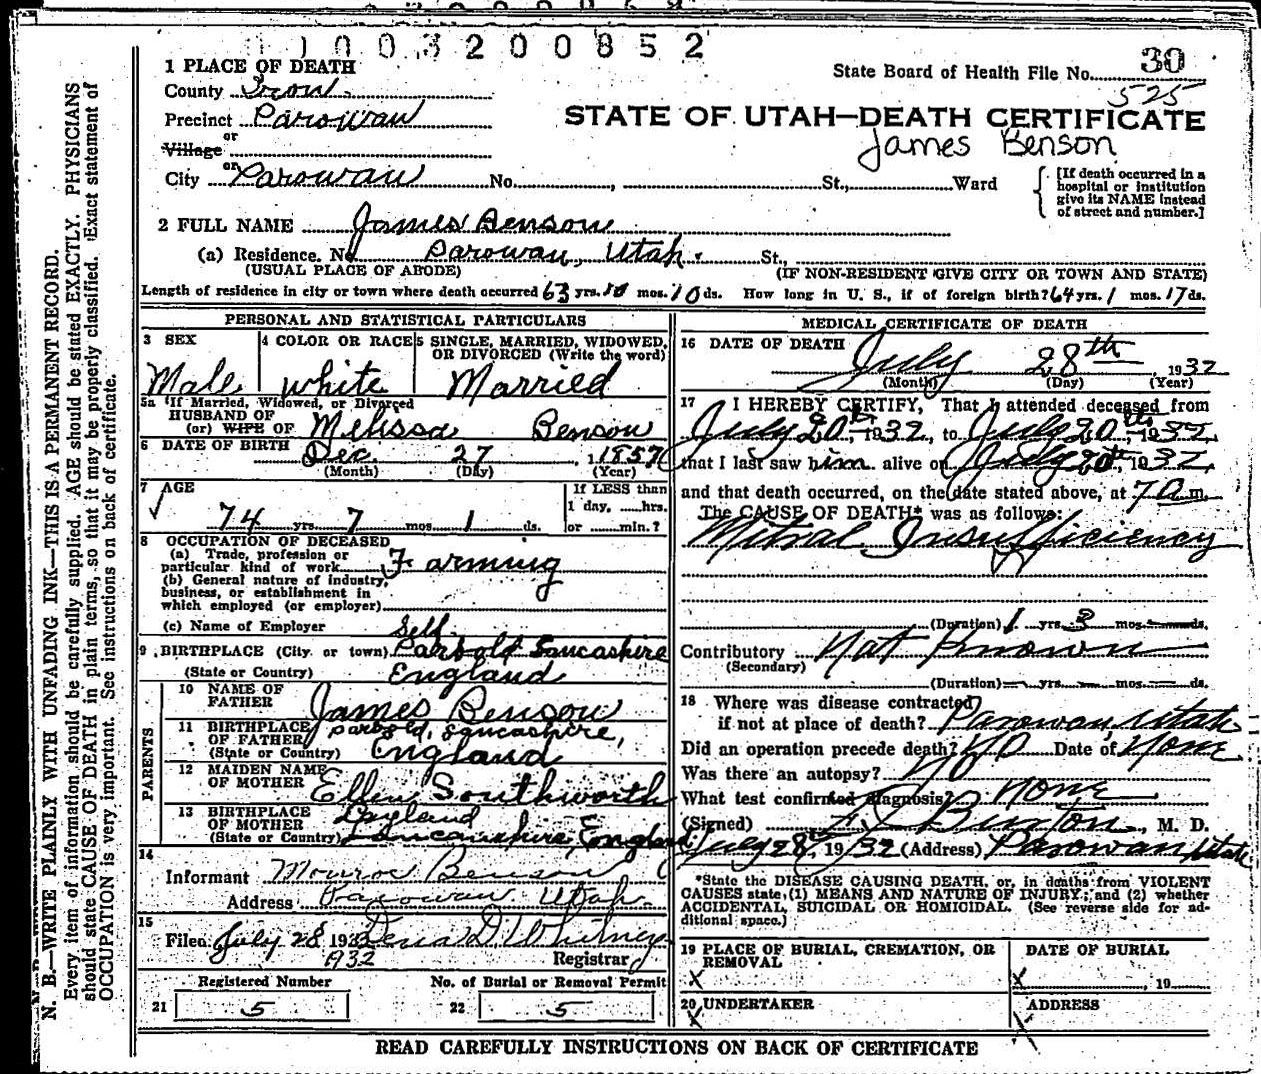 1003200852
1 PLACE OF DEATH
State Board of Health File No. 30
County Iron
525
Precinct Parowan
STATE OF UTAH—DEATH CERTIFICATE
or
James Benson
Village
or
City Parowan No. , St., Ward
[If death occurred in a
hospital or institution
give its NAME instead
of street and number.]
2 FULL NAME James Benson
(a) Residence. No Parowan, Utah. St.,
(USUAL PLACE OF ABODE) (IF NON-RESIDENT GIVE CITY OR TOWN AND STATE)
Length of residence in city or town where death occurred 63 yrs. 10 mos. 10 ds. How long in U. S., if of foreign birth? 64 yrs. 1 mos. 17 ds.
PERSONAL AND STATISTICAL PARTICULARS
3 SEX
Male
4 COLOR OR RACE
White
5 SINGLE, MARRIED, WIDOWED,
OR DIVORCED (Write the word)
Married
5a If Married, Widowed, or Divorced
HUSBAND OF
(or) WIFE OF Melissa Benson
6 DATE OF BIRTH Dec. 27, 1857
(Month) (Day) (Year)
7 AGE
74 yrs. 7 mos. 1 ds.
If LESS than
1 day, hrs.
or min.?
8 OCCUPATION OF DECEASED
(a) Trade, profession or
particular kind of work Farming
(b) General nature of industry,
business, or establishment in
which employed (or employer)
(c) Name of Employer Self
9 BIRTHPLACE (City or town) Parbold Lancashire
(State or Country) England
PARENTS
10 NAME OF
FATHER James Benson
11 BIRTHPLACE
OF FATHER Parbold, Lancashire,
(State or Country) England
12 MAIDEN NAME
OF MOTHER Ellen Southworth
13 BIRTHPLACE
OF MOTHER
(State or Country) Lancashire, England
14
Informant Monroe Benson
Address Parowan Utah.
15
Filed July 28 193
1932 Whitney
Registrar
Registered Number
21 5
No. of Burial or Removal Permit
22 5
MEDICAL CERTIFICATE OF DEATH
16 DATE OF DEATH
July 28th, 1932
(Month) (Day) (Year)
17 I HEREBY CERTIFY, That I attended deceased from
July 20th, 1932, to July 20th, 1932,
that I last saw him alive on July 20th, 1932,
and that death occurred, on the date stated above, at 7 a m.
The CAUSE OF DEATH* was as follows:
Mitral Insufficiency
(Duration) 1 yrs. 3 mos. ds.
Contributory Not Known
(Secondary)
(Duration) yrs. mos. ds.
18 Where was disease contracted
if not at place of death? Parowan, Utah
Did an operation precede death? No Date of None
Was there an autopsy? No
What test confirmed diagnosis? None
(Signed) Burton, M. D.
July 28th, 1932 (Address) Parowan Utah
*State the DISEASE CAUSING DEATH, or, in deaths from VIOLENT
CAUSES state, (1) MEANS AND NATURE OF INJURY; and (2) whether
ACCIDENTAL, SUICIDAL OR HOMICIDAL. (See reverse side for ad-
ditional space.)
19 PLACE OF BURIAL, CREMATION, OR
REMOVAL
X
DATE OF BURIAL
X , 19
20 UNDERTAKER
X
ADDRESS
X
READ CAREFULLY INSTRUCTIONS ON BACK OF CERTIFICATE
N. B.—WRITE PLAINLY WITH UNFADING INK—THIS IS A PERMANENT RECORD.
Every item of information should be carefully supplied. AGE should be stated EXACTLY. PHYSICIANS
should state CAUSE OF DEATH in plain terms, so that it may be properly classified. Exact statement of
OCCUPATION is very important. See instructions on back of certificate.